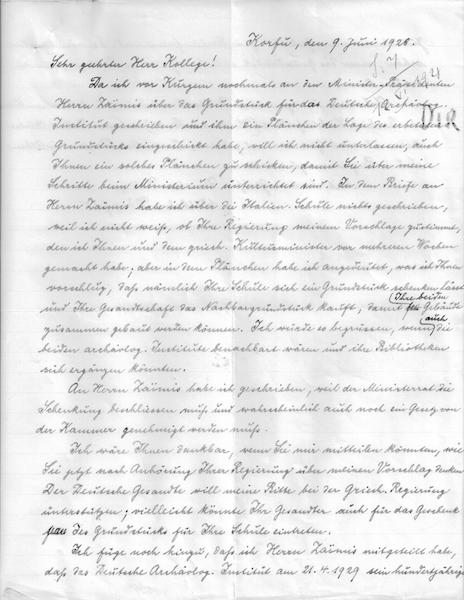 Korfu, den 9. Juni 1928.
Sehr geehrter Herr Kollege!
Da ich vor Kurzem nochmals an den Minister-Präsidenten
Herrn Zaïmis über das Grundstück für das Deutsche Archäolog.
Institut geschrieben und ihm ein Plänchen der Lage des erbetenen
Grundstücks eingeschickt habe, will ich nicht unterlassen, auch
Ihnen ein solches Plänchen zu schicken, damit Sie über meine
Schritte beim Ministerium unterrichtet sind. In dem Briefe an
Herrn Zaïmis habe ich über die Italien. Schule nichts geschrieben,
weil ich nicht weiß, ob Ihre Regierung meinem Vorschlage zustimmt,
den ich Ihnen und dem griech. Kultusminister vor mehreren Wochen
gemacht habe; aber in dem Plänchen habe ich angedeutet, was ich Ihnen
vorschlug, daß nämlich Ihre Schule sich ein Grundstück schenken lässt
und Ihre Gesandtschaft das Nachbargrundstück kauft, damit Ihre beiden Gebäude
zusammen gebaut werden können. Ich würde es begrüssen, wenn auch die
beiden archäolog. Institute benachbart wären und ihre Bibliotheken
sich ergänzen könnten.
An Herrn Zaïmis habe ich geschrieben, weil der Ministerrat die
Schenkung beschliessen muß und wahrscheinlich auch noch ein Gesetz von
der Kammer genehmigt werden muß.
Ich wäre Ihnen dankbar, wenn Sie mir mitteilen könnten, wie
Sie jetzt nach Anhörung Ihrer Regierung über meinen Vorschlag denken.
Der Deutsche Gesandte will meine Bitte bei der Griech. Regierung
unterstützen; vielleicht könnte Ihr Gesandter auch für das Geschenk
des Grundstücks für Ihre Schule eintreten.
Ich füge noch hinzu, daß ich Herrn Zaïmis mitgeteilt habe,
daß das Deutsche Archäolog. Institut am 21.4.1929 sein hundertjähriges